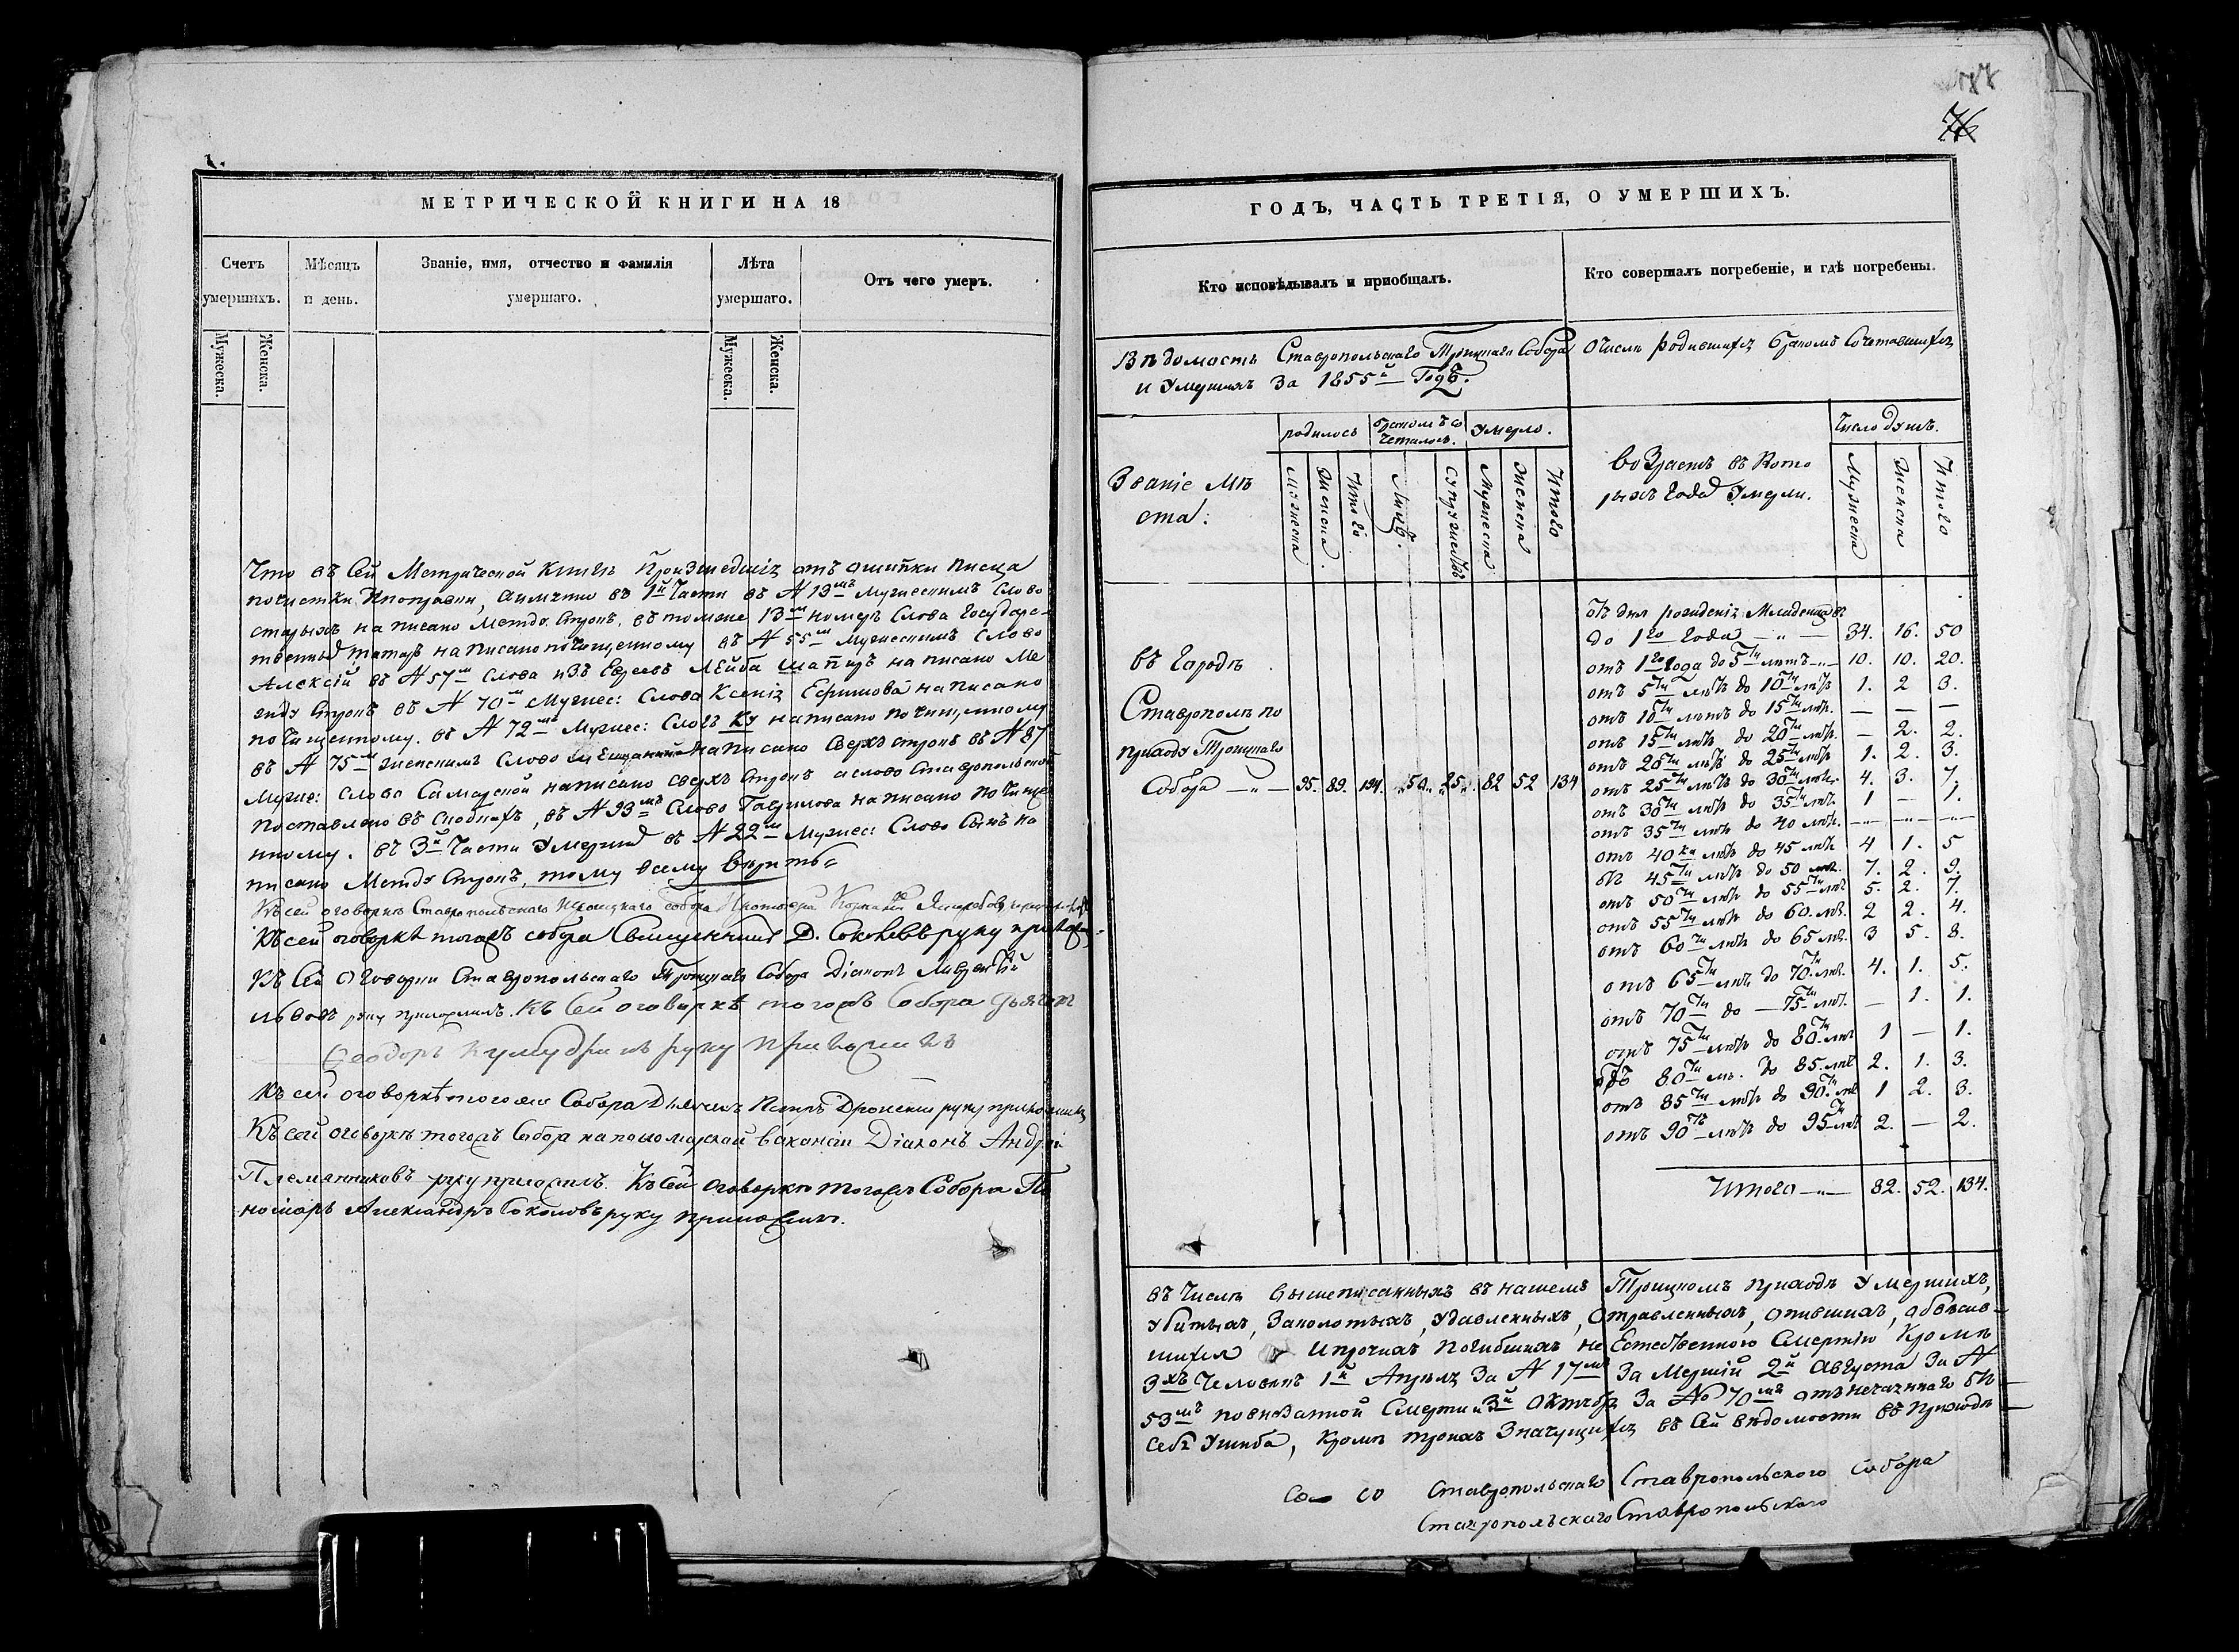 МЕТРИЧЕСКОЙ КНИГИ НА 18
Счетъ умершихъ.
Мѣсяцъ и день.
Званіе, имя, отчество и фамилія умершаго.
Лѣта умершаго.
Отъ чего умеръ.
Мужеска.
Женска.
Мужеска.
Женска.
Что въ сей Метрической Книгѣ Произшедшія отъ ошипки писца
почистки и поправки, аимянно въ 1й Части въ № 13мъ мужескимъ Слово
старыхъ написано между строкъ, въ томже 13мъ номерѣ Слова Государс-
твенныхъ татаръ написано почищенному въ № 55мъ мужескимъ Слово
Алексѣй въ № 57мъ Слова изъ Евреевъ Лейба написано Ме
жду строкъ въ № 70мъ Мужес: Слова Ксенія Ефимова написано
почищенному. въ № 72мъ Мужес: Слогъ ку написано почищенному
въ № 75мъ женскимъ Слово написано Сверхъ строкъ въ № 87
Мужес: слово Самарской написано сверхъ строкъ а слово Ставропольской
поставлено въ скобкахъ, въ № 93мъ Слово Гаврилова написано почище
нному. въ 3й Части Умершихъ въ № 22мъ Мужес: Слово Сынъ на
писано Между Строкъ, тому всему верить
Къ сей оговоркѣ Ставропольскаго Троицкаго собора
Къ сей оговоркѣ тогожъ собора Священникъ Д. Соколовъ руку приложилъ
Къ Сей Оговорки Ставропольскаго Троицкаго Собора Діаконъ
Львовъ руку приложилъ. Къ сей оговоркѣ тогожъ Собора дьячекъ
Ѳеодоръ руку приложилъ
Къ сей оговоркѣ тогоже Собора Дьячекъ Петръ руку приложилъ
Къ сей оговоркѣ тогожъ Собора на пономарской ваканіи Діаконъ Андрей
Племянниковъ руку приложилъ. Къ сей оговоркѣ тогожъ Собора По
номарь Александръ Соколовъ руку приложилъ.
76
ГОДЪ, ЧАСТЬ ТРЕТІЯ, О УМЕРШИХЪ.
Кто исповѣдывалъ и пріобщалъ.
Кто совершалъ погребеніе, и гдѣ погребены.
Вѣдомость Ставропольскаго Троицкаго Собора О числѣ родившихся бракомъ Сочетавшихся
и Умершихъ За 1855й Годъ.
Званіе Мѣ
ста:
родилось
бракомъ со
четалось.
Умерло.
Возрастъ въ Кото
рыхъ года Умерли.
Число душъ.
Мужеска
Женска
Итого
Лицъ.
Супружествъ
Мужеска
Женска
Итого
Мужеска
Женска
Итого
въ городѣ
Ставрополѣ по
приходу Троицкаго
Собора 95. 89. 184. 50. 25. 82 52 134
Отъ дня рожденія Младенцевъ
до 1го года 34. 16. 50
отъ 1го года до 5ти лѣтъ 10. 10. 20.
отъ 5ти лѣтъ до 10ти лѣтъ 1. 2 3.
отъ 10ти лѣтъ до 15ти лѣтъ. — — —
отъ 15ти лѣтъ до 20ти лѣтъ. — 2. 2.
отъ 20ти лѣтъ до 25ти лѣтъ 1. 2. 3.
отъ 25ти лѣтъ до 30ти лѣтъ. 4. 3. 7.
отъ 30ти лѣтъ до 35ти лѣтъ. 1 — 1.
отъ 35ти лѣтъ до 40 лѣтъ. — — —
отъ 40ка лѣтъ до 45 лѣтъ 4 1. 5
отъ 45ти лѣтъ до 50 лѣтъ. 7. 2. 9.
отъ 50ти лѣтъ до 55ти лѣтъ 5. 2. 7.
отъ 55ти лѣтъ до 60. лѣтъ. 2 2. 4.
отъ 60ти лѣтъ до 65 лѣтъ. 3 5. 8.
отъ 65ти лѣтъ до 70ти лѣтъ. 4. 1. 5.
отъ 70ти до 75ти лѣтъ. — 1. 1.
отъ 75ти лѣтъ до 80ти лѣтъ 1 — 1.
отъ 80ти лѣ. до 85. лѣтъ 2. 1. 3.
отъ 85ти лѣтъ до 90ти лѣтъ 1 2. 3.
отъ 90та лѣтъ до 95ти лѣтъ 2. — 2.
Итого 82. 52. 134.
въ Числѣ вышеписанныхъ въ нашемъ Троицкомъ приходѣ Умершихъ,
Убитыхъ, Заколотыхъ, Удавленныхъ, Отравленныхъ, опившихъ, обвѣсив-
шихся и прочихъ погибшихъ не Естественною Смертію Кромѣ
3хъ Человекъ 1й Апрѣля За № 17мъ За мерший 2й Августа За №
53мъ по внезапной Смерти и 3й Октября За № 70мъ отъ нечаяннаго
Себѣ Ушиба, Кромѣ троихъ Значущихся въ Сей вѣдомости въ приходѣ
Со со Ставропольскаго Ставропольского Собора
Ставропольскаго Ставропольского